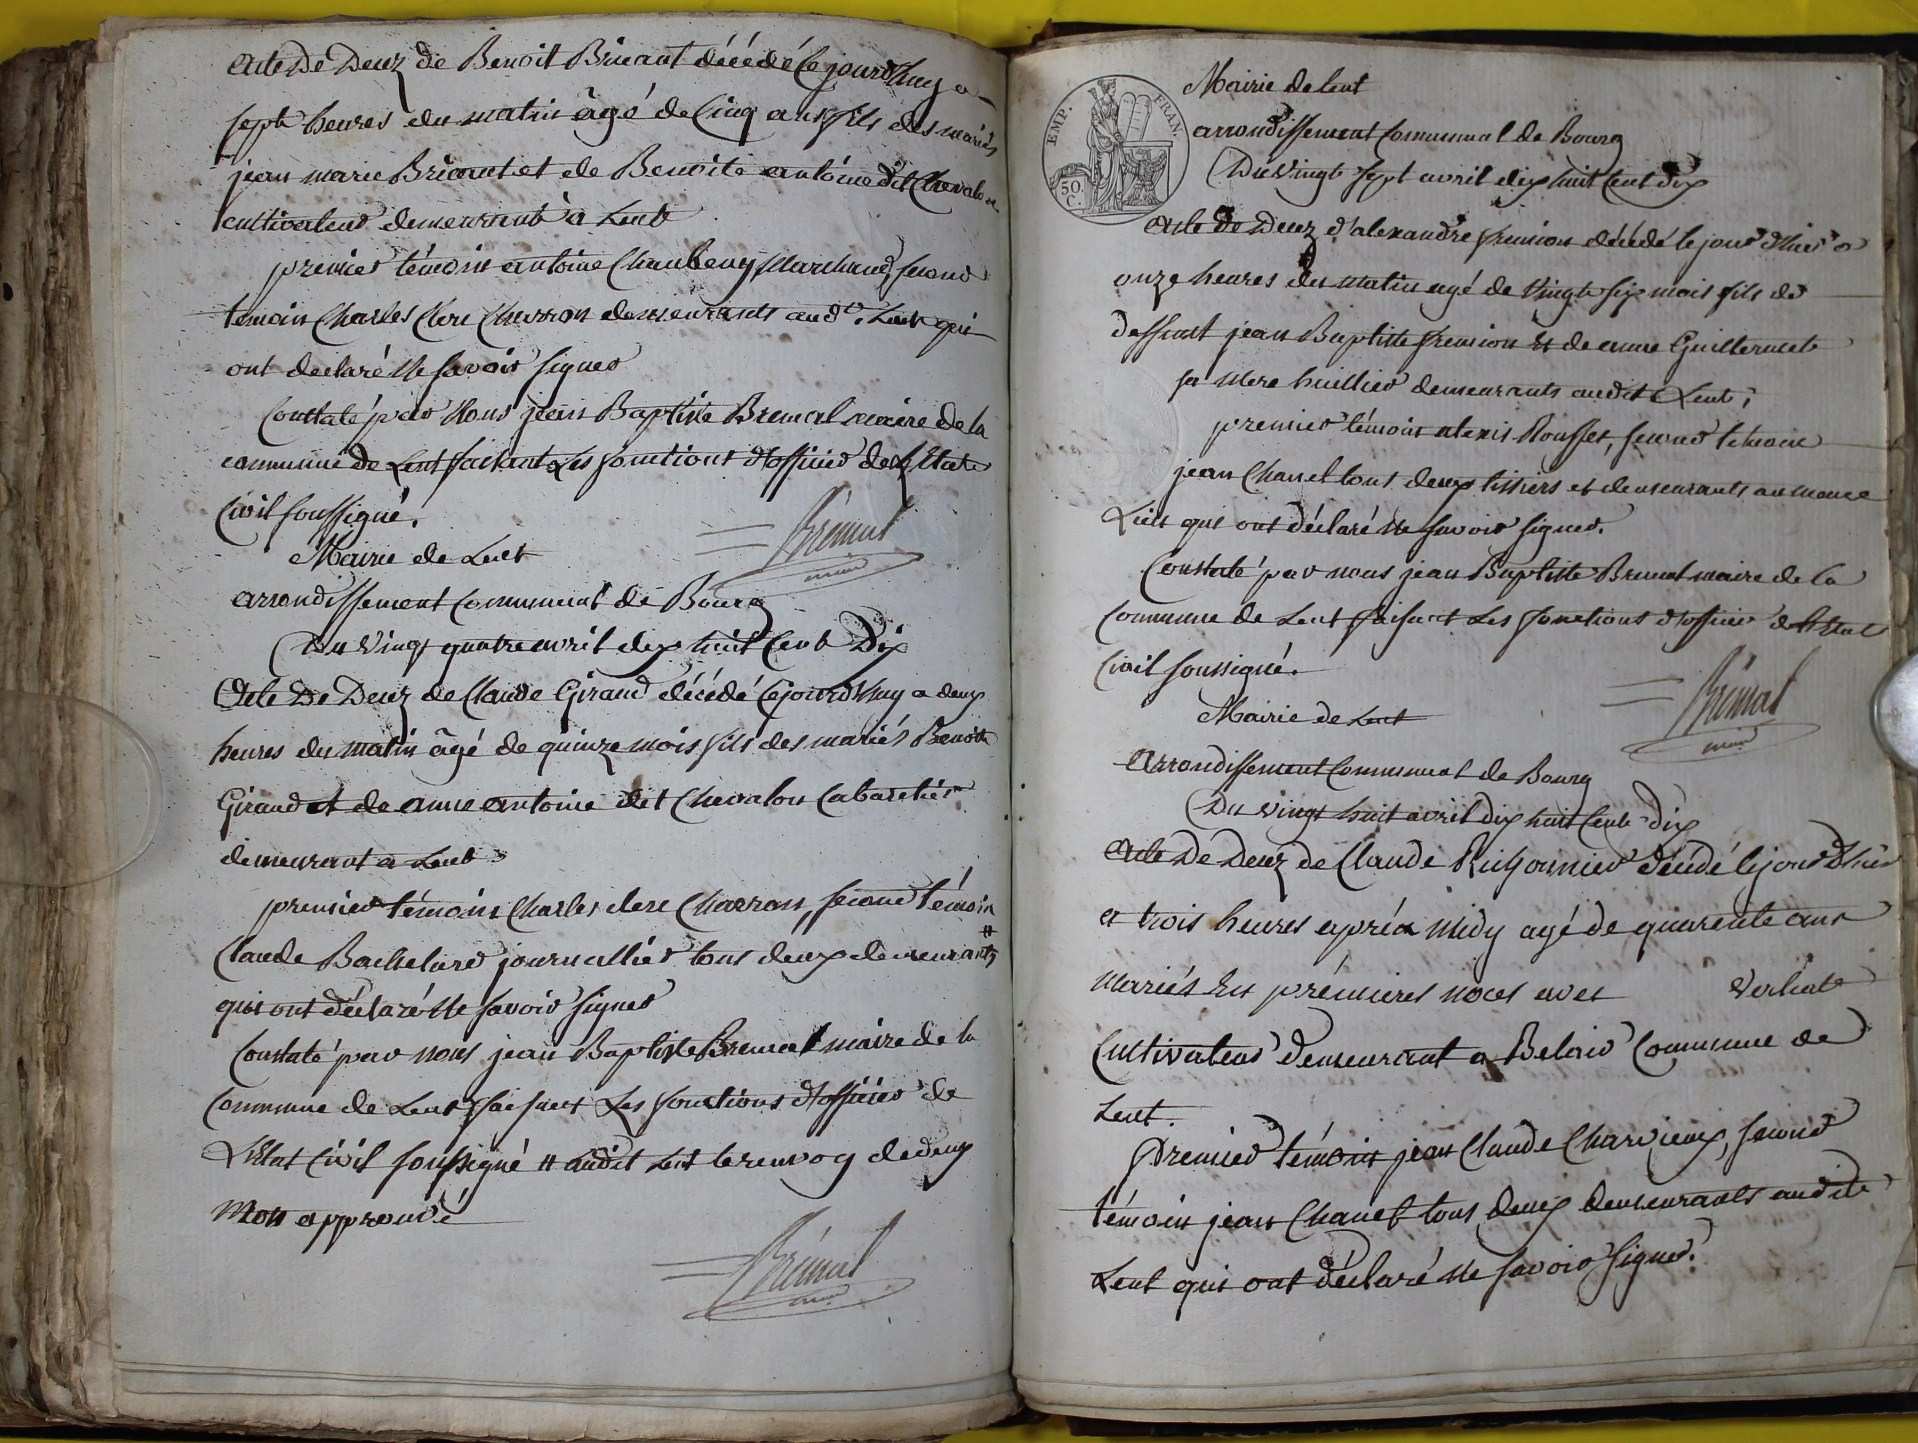 Acte De Decez de Benoit Bricaut décédé Cejourdhuy a
sept heures du matin âgé de Cinq ans fils des mariés
jean marie Bricaut et de Benoite antoine dit Chevalon
cultivateur demeurant à Lent
premier témoin antoine Chaubeny, Marchand, second
témoin Charles Clere Charron demeurants aud.t Lent qui
ont declaré Ne Savoir Signer
Constaté par Nous jean Baptiste Bremal maire de la
commune de Lent faisant Les fonctions d'officier de L'Etat
Civil soussigné.
Brémal
maire
Mairie de Lent
arrondissement Communal de Bourg
Du Vingt quatre avril dix huit Cent Dix
Acte De Decez de Claude Giraud décédé Cejourdhuy a deux
heures du matin âgé de quinze mois fils des mariés Benoit
Giraud et de anne antoine dit Chevalon Cabaretier
demeurant a Lent
premier témoin Charles clere Charron, second témoin
Claude Bachelard journallier tous deux demeurants #
qui ont déclaré Ne Savoir Signer
Constaté par nous jean Baptiste Bremal maire de la
Commune de Lent faisant Les fonctions d'officier de
L'Etat Civil soussigné # audit Lent le renvoy de deux
Mots approuvé
Brémal
maire
EMP. FRAN.
50.
C.
Mairie de lent
arrondissement Communal de Bourg
Du Vingt Sept avril dix huit Cent dix
Acte De Decez d'alexandre fremion décédé le jour d'hier a
onze heures du matin agé de Vingt six mois fils de
deffunt jean Baptiste fremion Et de anne Guillermet
sa Mere huillier demeurants audit Lent;
premier témoin alexis Rousset, second témoin
jean Chanel tous deux tissiers et demeurants au meme
Lieu qui ont déclaré Ne Savoir Signer.
Constaté par nous jean Baptiste Bremal maire de la
Commune de Lent faisant Les fonctions d'officier de L'Etat
Civil soussigné.
Brémal
maire
Mairie de Lent
Arrondissement Communal de Bourg
Du Vingt huit avril dix huit Cent Dix
Acte De Decez de Claude décédé le jour d'hier
a trois heures après Midy agé de quarente ans
Mariés En prémieres noces avec Verhiat
Cultivateur demeurant a Belair Commune de
Lent.
Premier témoin jean Claude Charvieux, second
témoin jean Chanel tous deux demeurants audit
Lent qui ont déclaré Ne Savoir Signer.